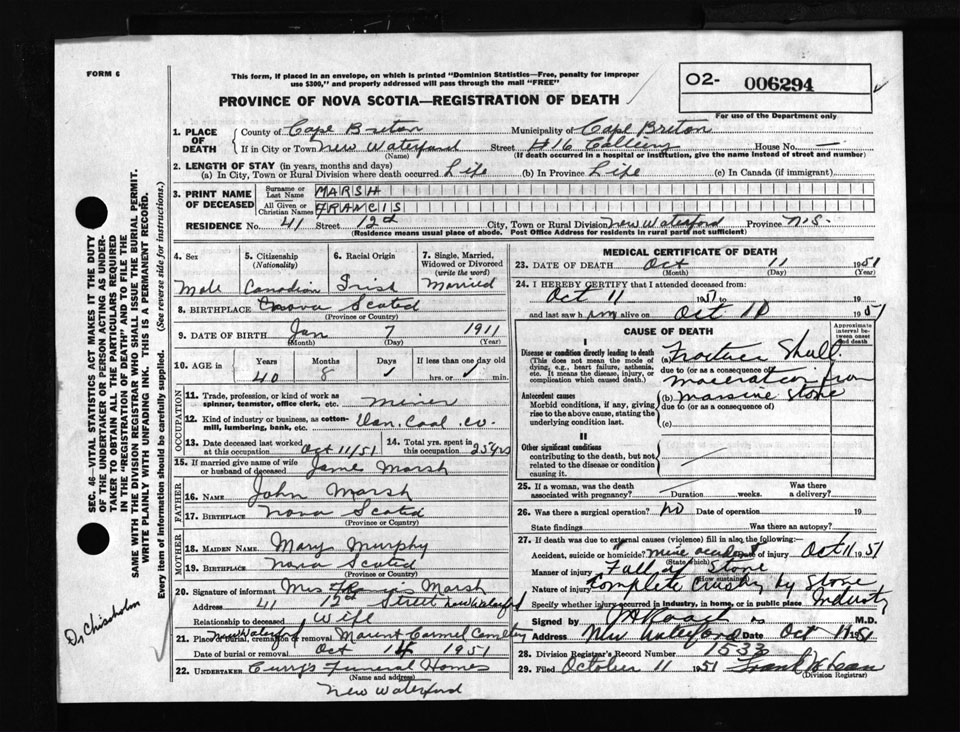 FORM 6
This form, if placed in an envelope, on which is printed "Dominion Statistics—Free, penalty for improper
use $300," and properly addressed will pass through the mail "FREE"
O2- 006294
For use of the Department only
PROVINCE OF NOVA SCOTIA—REGISTRATION OF DEATH
1. PLACE OF DEATH
County of Cape Breton Municipality of Cape Breton
If in City or Town New Waterford Street #16 Colliery House No. —
(Name) (If death occurred in a hospital or institution, give the name instead of street and number)
2. LENGTH OF STAY (in years, months and days)
(a) In City, Town or Rural Division where death occurred Life (b) In Province Life (c) In Canada (if immigrant)
3. PRINT NAME OF DECEASED
Surname or Last Name MARSH
All Given or Christian Names FRANCIS
RESIDENCE No. 41 Street 12th City, Town or Rural Division New Waterford Province N.S.
(Residence means usual place of abode. Post Office Address for residents in rural parts not sufficient)
SEC. 46—VITAL STATISTICS ACT MAKES IT THE DUTY
OF THE UNDERTAKER OR PERSON ACTING AS UNDER-
TAKER TO OBTAIN ALL THE PARTICULARS REQUIRED
IN THE "REGISTRATION OF DEATH" AND TO FILE THE
SAME WITH THE DIVISION REGISTRAR WHO SHALL ISSUE THE BURIAL PERMIT.
WRITE PLAINLY WITH UNFADING INK. THIS IS A PERMANENT RECORD.
Every item of information should be carefully supplied. (See reverse side for instructions.)
Dr Chisholm
4. Sex
Male
5. Citizenship (Nationality)
Canadian
6. Racial Origin
Irish
7. Single, Married, Widowed or Divorced (write the word)
Married
8. BIRTHPLACE Nova Scotia
(Province or Country)
9. DATE OF BIRTH Jan 7 1911
(Month) (Day) (Year)
10. AGE in Years Months Days If less than one day old
40 8 hrs. or min.
OCCUPATION
11. Trade, profession, or kind of work as
spinner, teamster, office clerk, etc. Miner
12. Kind of industry or business, as cotton-
mill, lumbering, bank, etc. Dom. Coal Co.
13. Date deceased last worked
at this occupation Oct 11/51
14. Total yrs. spent in
this occupation 25 yrs
15. If married give name of wife
or husband of deceased Jane Marsh
FATHER
16. NAME John Marsh
17. BIRTHPLACE Nova Scotia
(Province or Country)
MOTHER
18. MAIDEN NAME Mary Murphy
19. BIRTHPLACE Nova Scotia
(Province or Country)
20. Signature of informant Mrs Francis Marsh
Address 41 12th Street New Waterford
Relationship to deceased Wife
21. Place of burial, cremation or removal New Waterford Mount Carmel Cemetery
Date of burial or removal Oct 14 1951
22. UNDERTAKER Curry's Funeral Homes
(Name and address)
New Waterford
MEDICAL CERTIFICATE OF DEATH
23. DATE OF DEATH Oct 11 1951
(Month) (Day) (Year)
24. I HEREBY CERTIFY that I attended deceased from:
Oct 11 1951 to 19
and last saw him alive on Oct 11 1951
CAUSE OF DEATH
Approximate interval between onset and death
I
Disease or condition directly leading to death
(This does not mean the mode of
dying, e.g., heart failure, asthenia,
etc. It means the disease, injury, or
complication which caused death.)
(a) Fracture Skull
due to (or as a consequence of)
maceration from
Antecedent causes
Morbid conditions, if any, giving
rise to the above cause, stating the
underlying condition last.
(b) massive Stone
due to (or as a consequence of)
(c)
II
Other significant conditions
contributing to the death, but not
related to the disease or condition
causing it.
25. If a woman, was the death
associated with pregnancy? Duration weeks. Was there
a delivery?
26. Was there a surgical operation? No Date of operation 19
State findings Was there an autopsy?
27. If death was due to external causes (violence) fill in also the following:—
Accident, suicide or homicide? mine accident Date of injury Oct 11 1951
(State which)
Manner of injury Fall of Stone
(How sustained)
Nature of injury Complete crushing by Stone
Specify whether injury occurred in industry, in home, or in public place Industry
Signed by M.D.
Address New Waterford Date Oct 11 1951
28. Division Registrar's Record Number 1533
29. Filed October 11 1951 Frank McLean
(Division Registrar)